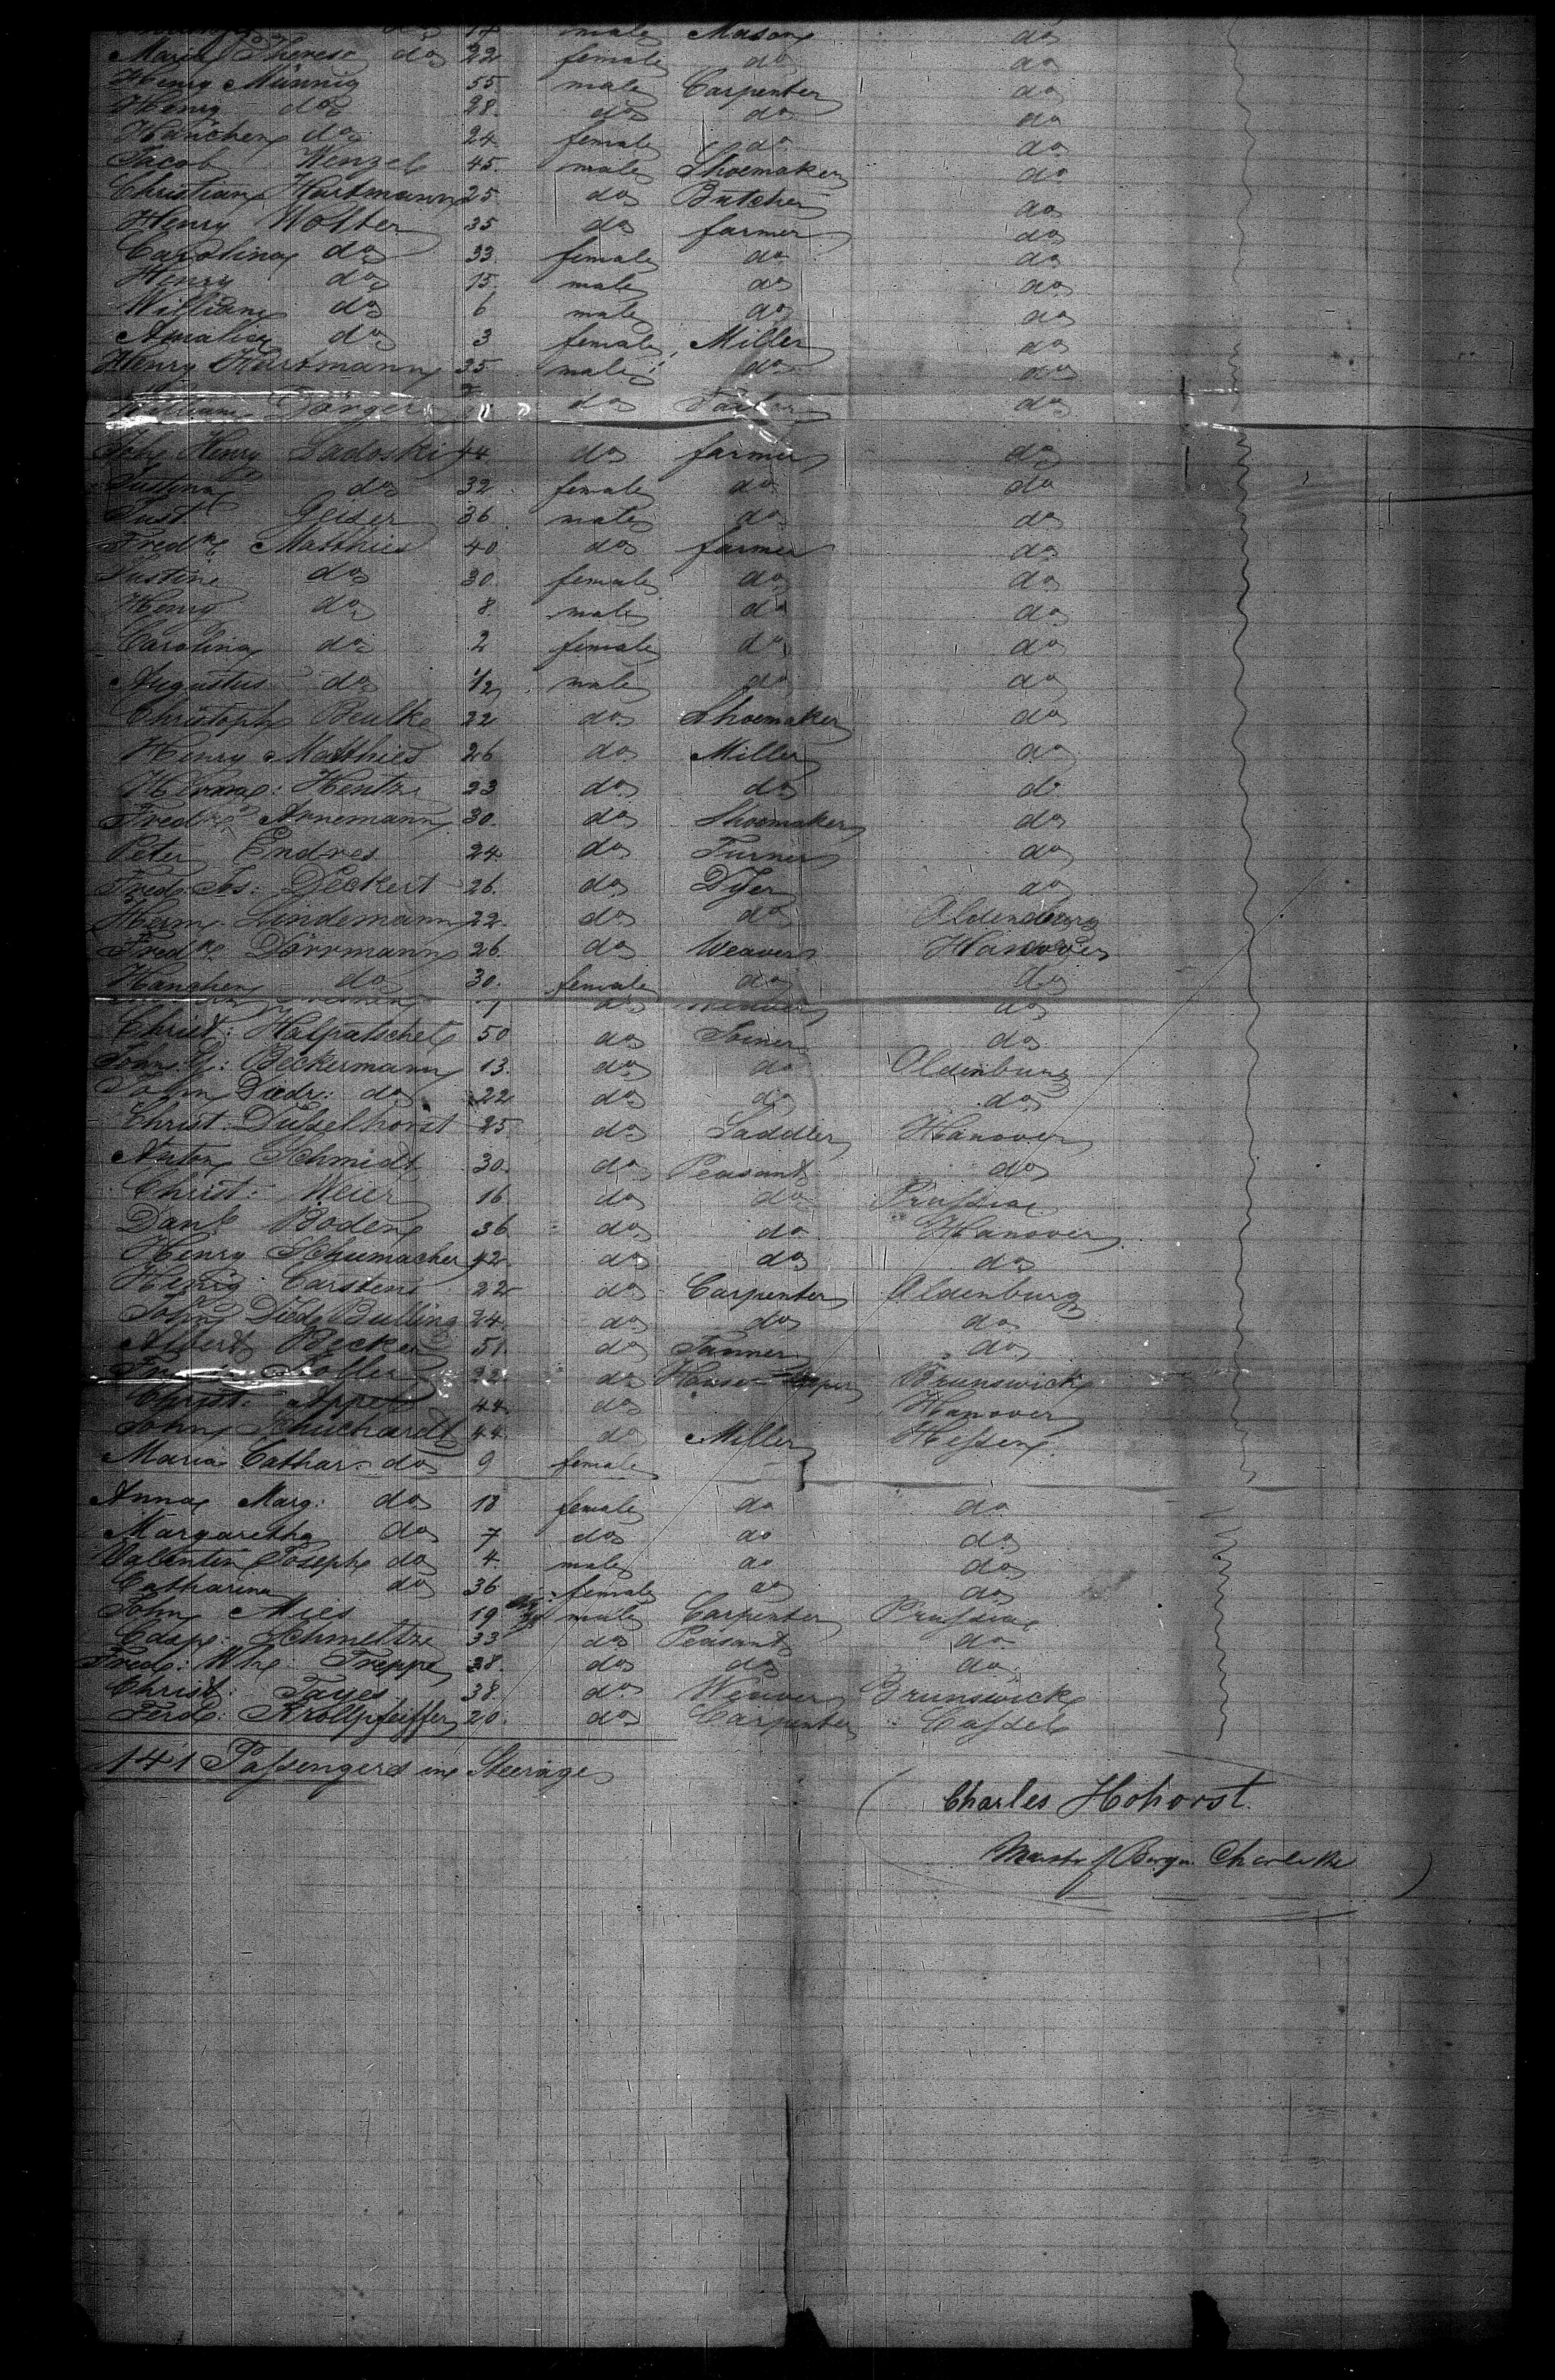 do 17 male Mason do
Maria Theresa do 22 female do do
Henry Münnig 55 male Carpenter do
Henry do 28 do do do
Hanchen do 24 female do do
Jacob Wenzel 45 male Shoemaker do
Christian Hartmann 25 do Butcher do
Henry Wolter 35 do farmer do
Carolina do 33 female do do
Henry do 15 male do do
William do 6 male do do
Amalia do 3 female Miller do
Henry Hartmann 35 male do do
William do Tailor do
John Henry Sadoski 44 do farmer do
Justina do 32 female do do
Just Geiser 36 male do do
Fredk Matthies 40 do farmer do
Justine do 30 female do do
Henry do 8 male do do
Carolina do 2 female do do
Augustus do 1/2 male do do
Christoph Beulke 22 do Shoemaker do
Henry Matthies 26 do Miller do
Herm: Hentze 23 do do do
Fredk Arnemann 30 do Shoemaker do
Peter Endres 24 do Turner do
Fred: Js: Deckert 26 do Dyer do
Herm Lindemann 22 do do Oldenburg
Fredk Dörrmann 26 do Weaver Hanover
Hanchen do 30 female do do
do do
Christ: Halpatschek 50 do Joiner do
John G: Beckermann 13 do do Oldenburg
John Diedr: do 22 do do do
Christ Düselhorst 25 do Saddler Hanover
Anton Schmidt 30 do Peasant do
Christ: Meier 16 do do Prussia
Danl Boden 36 do do Hanover
Henry Schumacher 42 do do do
Henry Carstens 22 do Carpenter Oldenburg
John Died Bulling 24 do do do
Albert Becker 51 do Tanner do
32 do Brunswick
Christ: Appel 44 do Hanover
John Schuchardt 44 do Miller Hessen
Maria Cathar: do 9 female
Anna Marg: do 18 female do do
Margaretha do 7 do do do
Valentin Joseph do 4 male do do
Catharina do 36 female do do
John Mies 19 male Carpenter Prussia
Casp: Schmeltze 33 do Peasant do
Fred: Wh: Treppe 38 do do do
Christ: Tayes 38 do Weaver Brunswick
Ferd: Krollpfeiffer 20 do Carpenter Cassel
141 Passengers in Steerage
Charles Hohorst.
Master